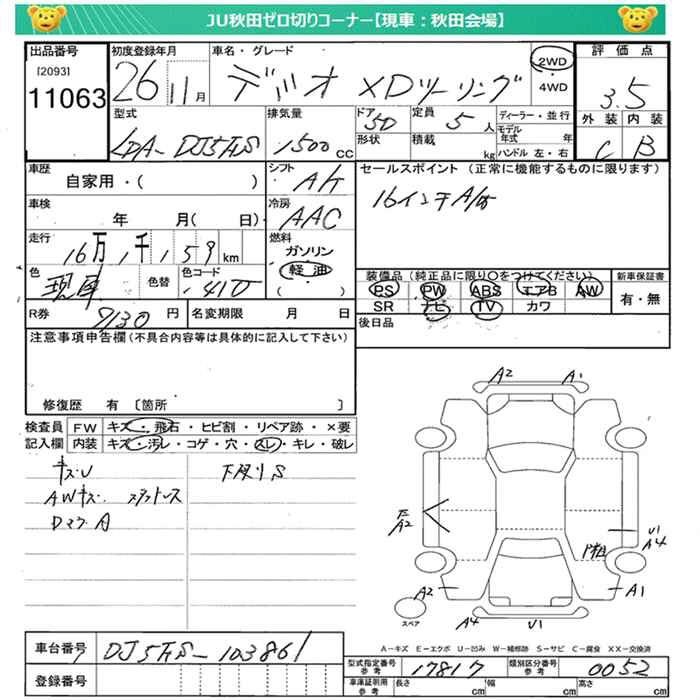 JU秋田ゼロ切りコーナー【現車：秋田会場】
出品番号 初度登録年月 車名・グレード 2WD 評価点
[2093] 11063 26 11月 デミオ XDツーリング 4WD 3.5
型式 排気量 ドア 定員 ディーラー・並行 外装 内装
LDA-DJ5FS 1500cc 5D 5人 モデル年式 年 C B
形状 積載 kg ハンドル 左・右
車歴 シフト セールスポイント（正常に機能するものに限ります）
自家用・( ) AT 16インチA/W
車検 冷房
年 月( 日)・ AAC
走行 燃料
16万1千159km ガソリン
軽油
( )
色 色替 色コード 装備品（純正品に限り○をつけてください） 新車保証書
現車 41V PS PW ABS エアB AW 有・無
SR ナビ TV カワ
R券 7130円 名変期限 月 日 後日品
注意事項申告欄（不具合内容等は具体的に記入して下さい）
修復歴 有 〔箇所 〕
検査員 FW キズ・飛石・ヒビ割・リペア跡・×要
記入欄 内装 キズ・汚レ・コゲ・穴・スレ・キレ・破レ
キズU 下廻りS
AWキズ スタットレス
DマワA
A2 A1
A2
U1
A4
A2 A1
A4 U1
スペア
A-キズ E-エクボ U-凹み W-補修跡 S-サビ C-腐食 XX-交換済
車台番号 DJ5FS-103861
型式指定番号 参考 17817 類別区分番号 参考 0052
登録番号
車庫証明用 参考 長さ cm 幅 cm 高さ cm